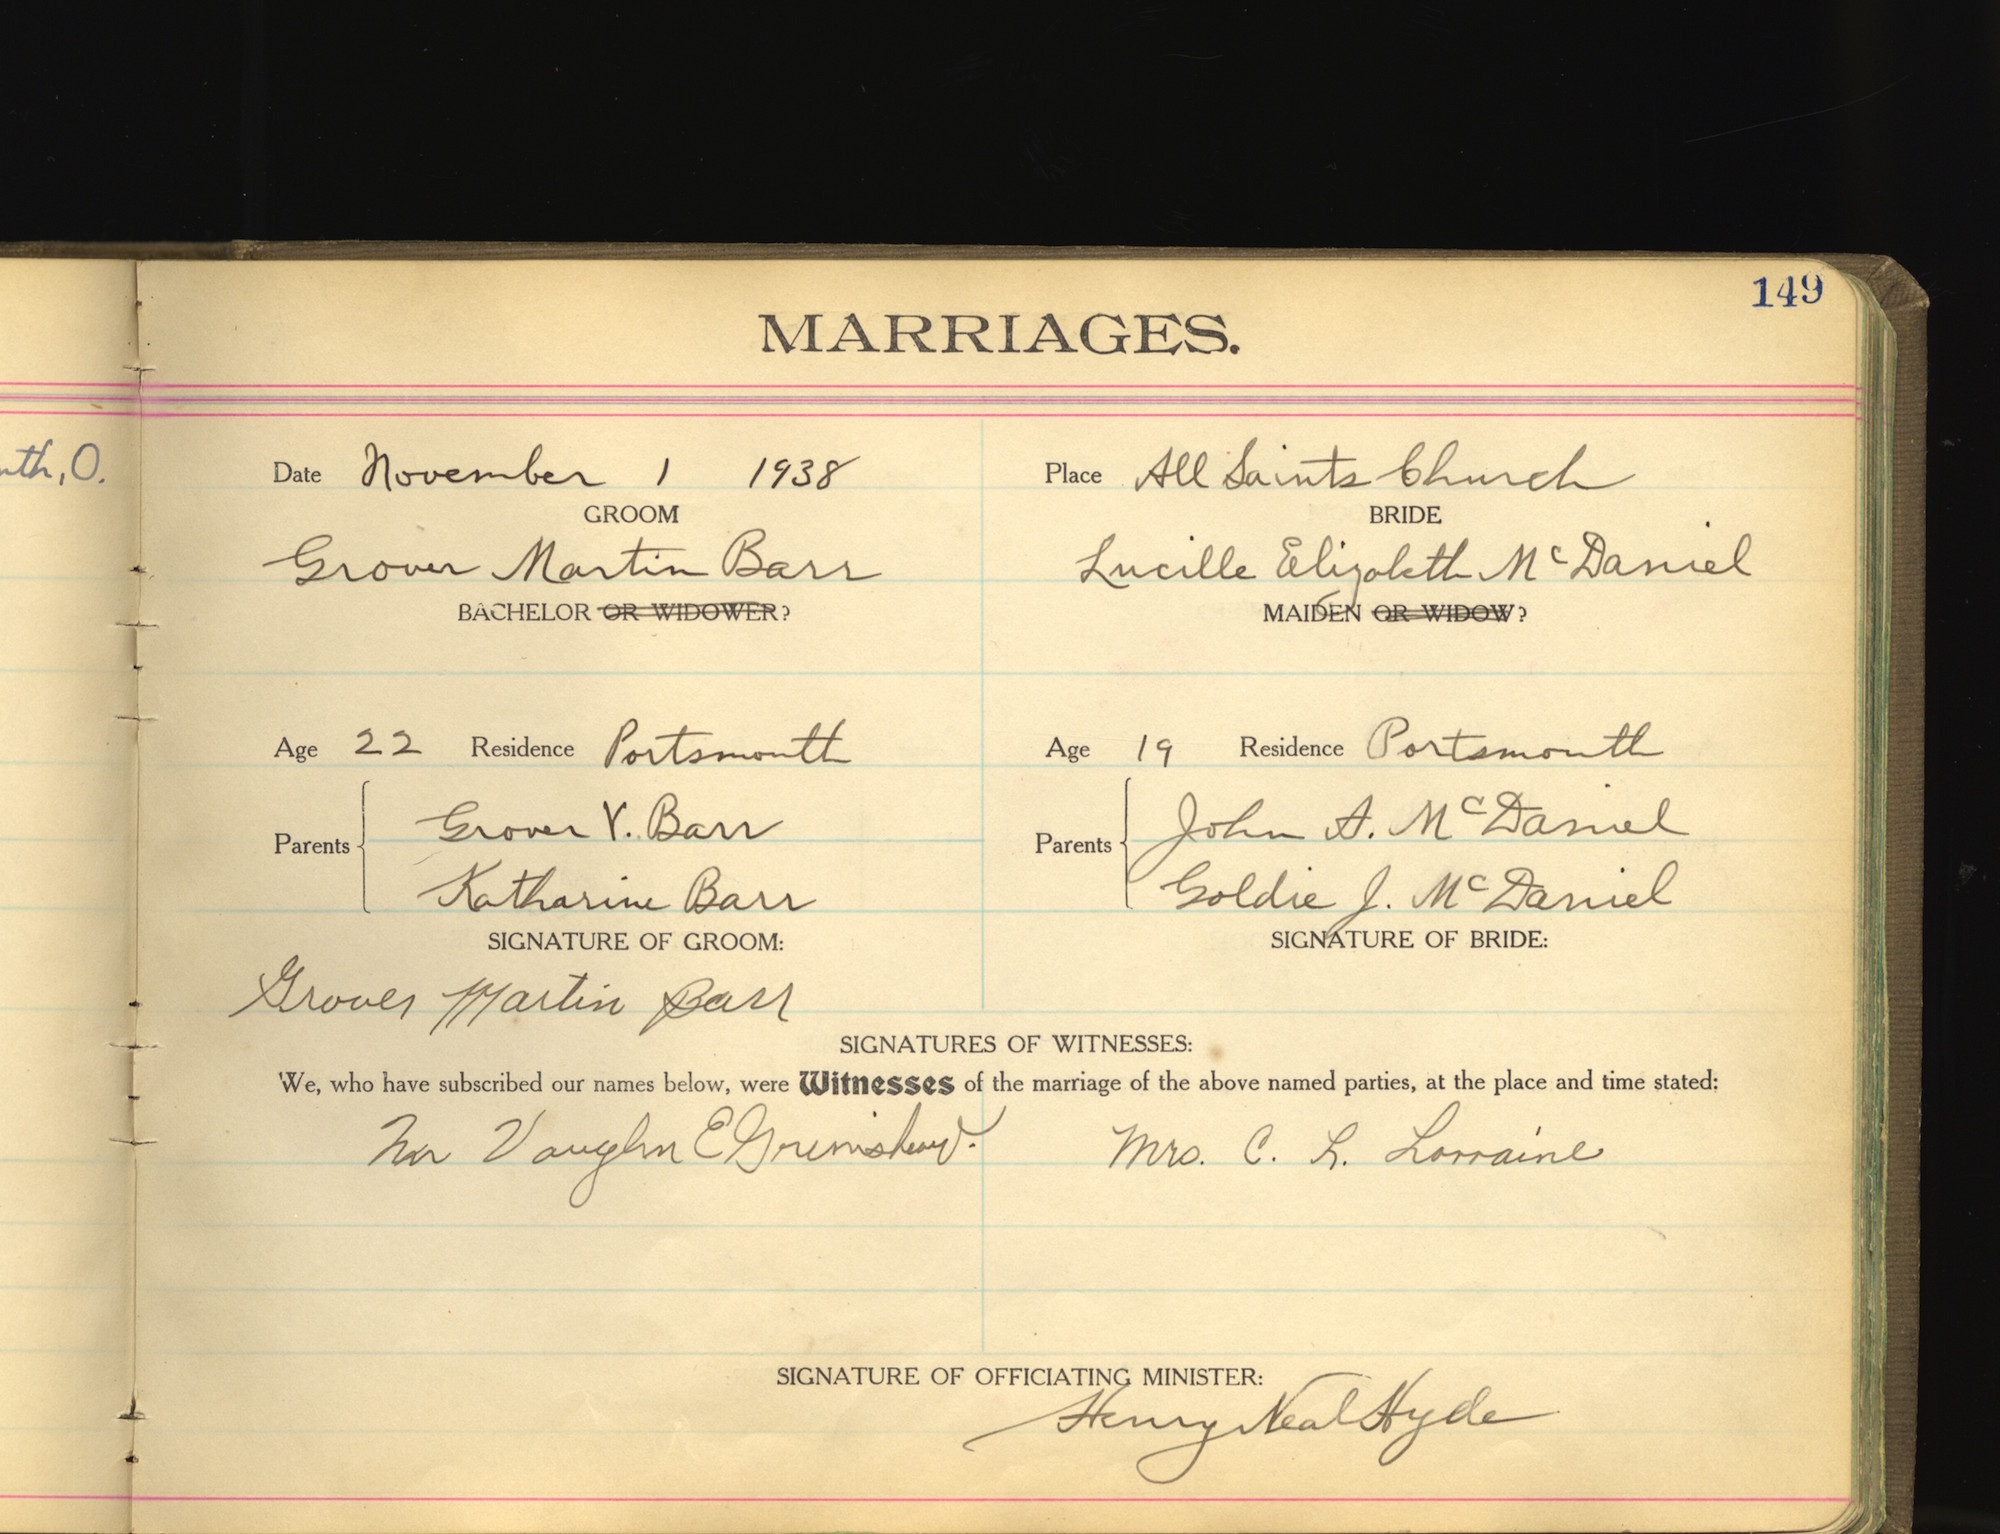 149
MARRIAGES.
th, O.
Date November 1 1938 Place All Saints Church
GROOM BRIDE
Grover Martin Barr Lucille Elizabeth McDaniel
BACHELOR OR WIDOWER? MAIDEN OR WIDOW?
Age 22 Residence Portsmouth Age 19 Residence Portsmouth
Parents Grover V. Barr Parents John A. McDaniel
Katharine Barr Goldie J. McDaniel
SIGNATURE OF GROOM: SIGNATURE OF BRIDE:
Grover Martin Barr
SIGNATURES OF WITNESSES:
We, who have subscribed our names below, were Witnesses of the marriage of the above named parties, at the place and time stated:
Vaughn E Mrs. C. L. Lorraine
SIGNATURE OF OFFICIATING MINISTER:
Henry Neal Hyde